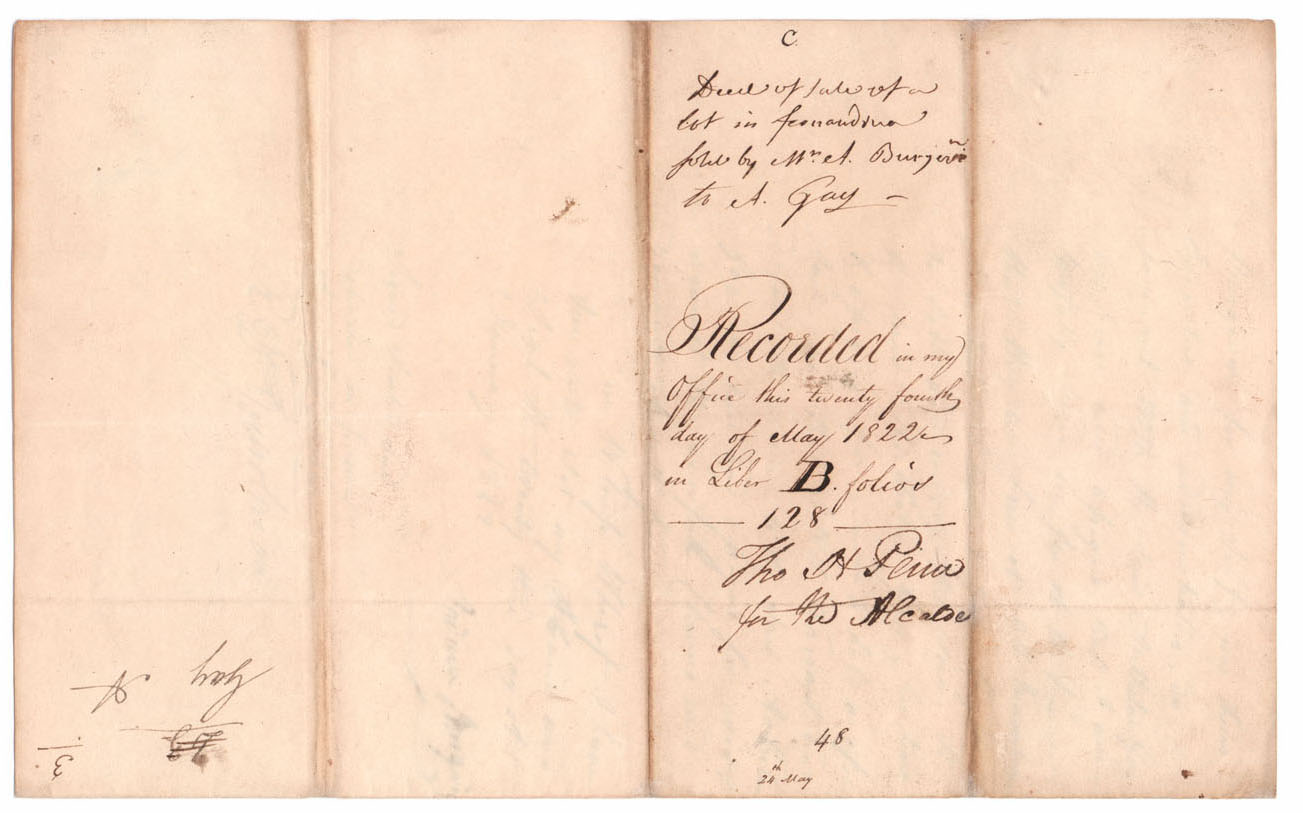 C
Deed of sale of a
lot in fernandina
sold by Mr. A.
to A. Gay —
Recorded in my
Office this twenty fourth
day of May 1822
in Liber B. folios
128
Tho H Penn
for the Alcalde
48
24th May
Gay A
3